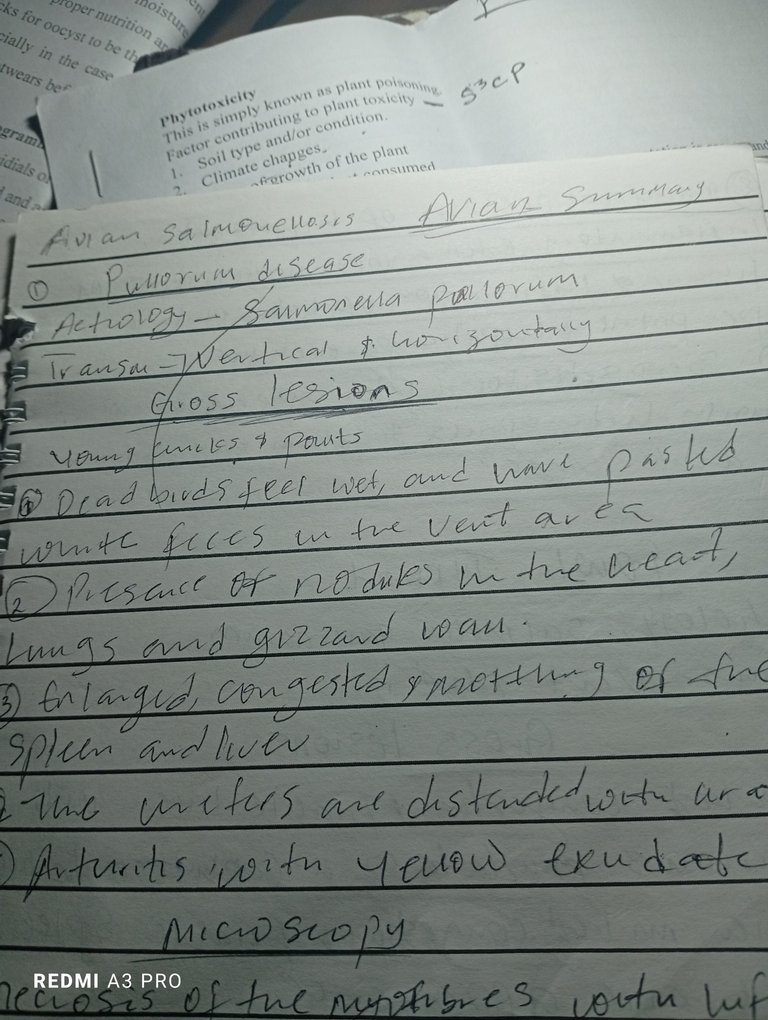 proper nutrition
moisture
cks for oocyst to be
cially in the case
Phytotoxicity
This is simply known as plant poisoning.
Factor contributing to plant toxicity
1. Soil type and/or condition.
2. Climate changes.
growth of the plant
consumed
S3CP
Avian Salmonellosis Avian Summary
① Pullorum disease
Aetiology - Salmonella pullorum
Transm - Vertical & horizontally
Gross lesions
Young chicks & poults
① Dead birds feel wet, and have pasted
white feces in the vent area
② Presence of nodules in the heart,
Lungs and gizzard wall.
③ Enlarged, congested & mottling of the
Spleen and liver
The ureters are distended with
Arthritis with yellow exudate
Microscopy
of the with
REDMI A3 PRO